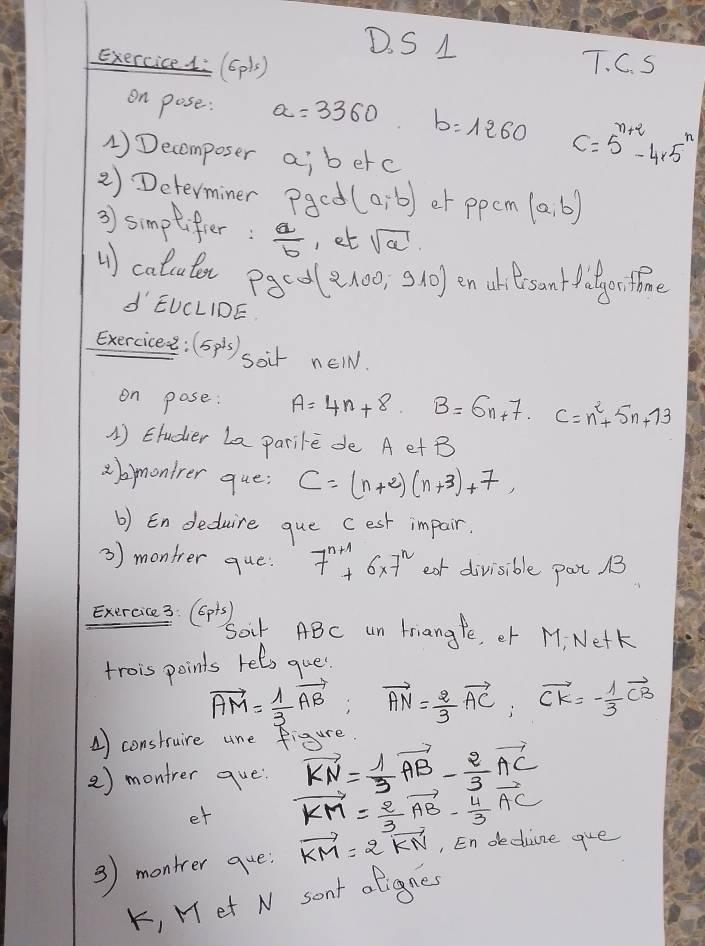 D.S 1
T.C.S
Exercice 1: (6pts)
on pose: a=3360. b=1260 C=5^{n+2}-4×5^n
1) Decomposer a; b et c
2) Determiner pgcd(a;b) et ppcm(a;b)
3) simplifier : \frac{a}{b}, et √a.
4) calculer pgcd(2100; 910) en utilisant l'algorithme
d'EUCLIDE.
Exercice 2: (5pts) Soit n∈IN.
on pose: A=4n+8. B=6n+7. C=n²+5n+13
1) Etudier la parité de A et B
2)a) montrer que: C=(n+2)(n+3)+7,
b) En deduire que C est impair.
3) montrer que: 7^{n+1}+6×7^n est divisible par 13.
Exercice 3: (6pts)
Soit ABC un triangle, et M; N et K
trois points tels que:
\vec{AM}=\frac{1}{3}\vec{AB} ; \vec{AN}=\frac{2}{3}\vec{AC} ; \vec{CK}=-\frac{1}{3}\vec{CB}
1) construire une figure.
2) montrer que: \vec{KN}=\frac{1}{3}\vec{AB}-\frac{2}{3}\vec{AC}
et \vec{KM}=\frac{2}{3}\vec{AB}-\frac{4}{3}\vec{AC}
3) montrer que: \vec{KM}=2\vec{KN}, En deduire que
K, M et N sont alignés